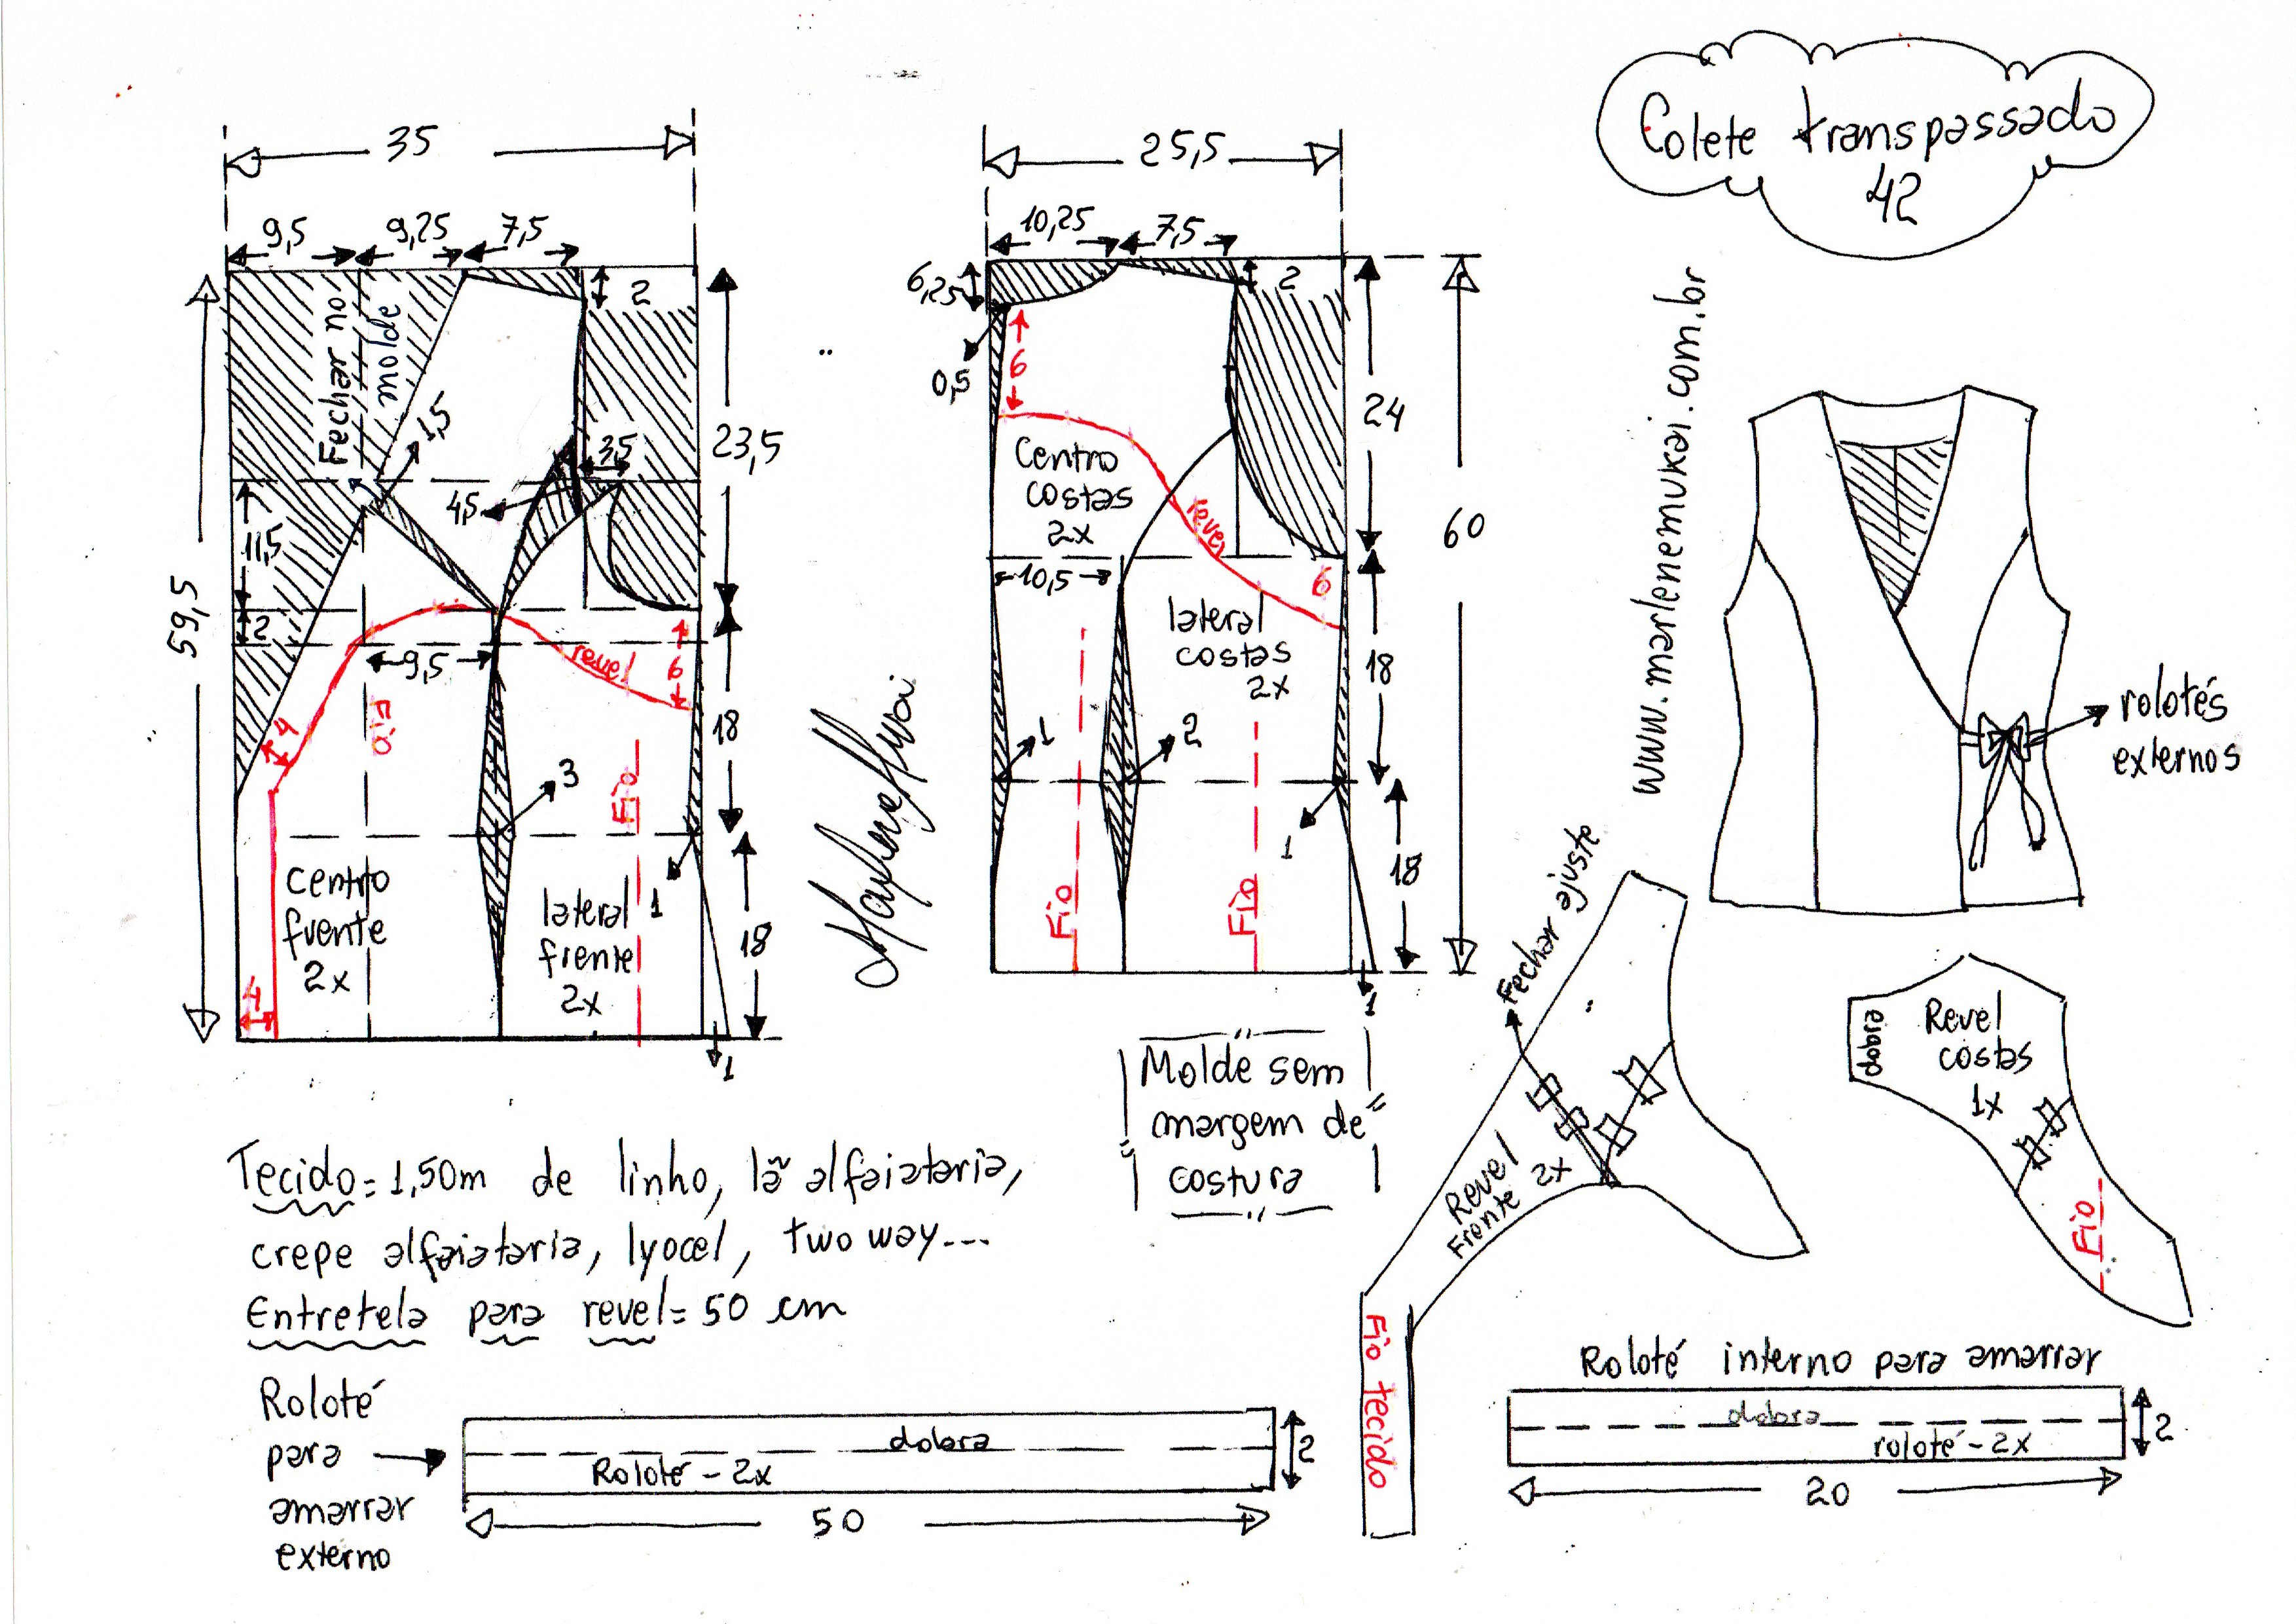 Colete transpassado
42
www.marlenemukai.com.br
35
9,5
9,25
7,5
2
Fechar no
molde
1,5
3,5
4,5
23,5
11,5
2
59,5
9,5
revel
6
fio
4
18
3
Fio
1
centro
frente
2x
lateral
frente
2x
18
4
1
25,5
10,25
7,5
6,25
2
0,5
6
24
Centro
costas
2x
revel
60
10,5
6
lateral
costas
2x
18
1
2
1
18
Fio
Fio
1
Marlene Mukai
rolotés
externos
Molde sem
margem de
costura
Fechar ajuste
Revel
Frente 2x
Fio tecido
dobra
Revel
costas
1x
fio
Tecido = 1,50m de linho, lã alfaiataria,
crepe alfaiataria, lyocel, two way...
Entretela para revel = 50 cm
Roloté
para
amarrar
externo
dobra
Roloté - 2x
2
50
Roloté interno para amarrar
dobra
roloté - 2x
2
20